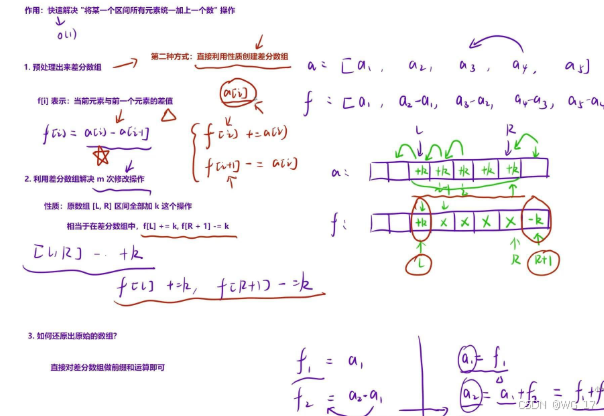 作用：快速解决 "将某一个区间所有元素统一加上一个数" 操作
O(1)
1. 预处理出来差分数组
第二种方式：直接利用性质创建差分数组
f[i] 表示：当前元素与前一个元素的差值
a[i]
f[i] = a[i] - a[i-1]
f[i] += a[i]
f[i+1] -= a[i]
a = [a1, a2, a3, a4, a5]
f = [a1, a2-a1, a3-a2, a4-a3, a5-a4
L R
a: +k +k +k +k +k
f: +k × × × × -k
L R R+1
2. 利用差分数组解决 m 次修改操作
性质：原数组 [L, R] 区间全部加 k 这个操作
相当于在差分数组中，f[L] += k, f[R + 1] -= k
[L, R] -- +k
f[L] += k, f[R+1] -= k
3. 如何还原出原始的数组?
直接对差分数组做前缀和运算即可
f1 = a1
f2 = a2-a1
a1 = f1
a2 = a1+f2 = f1+f
CSDN @WG_17